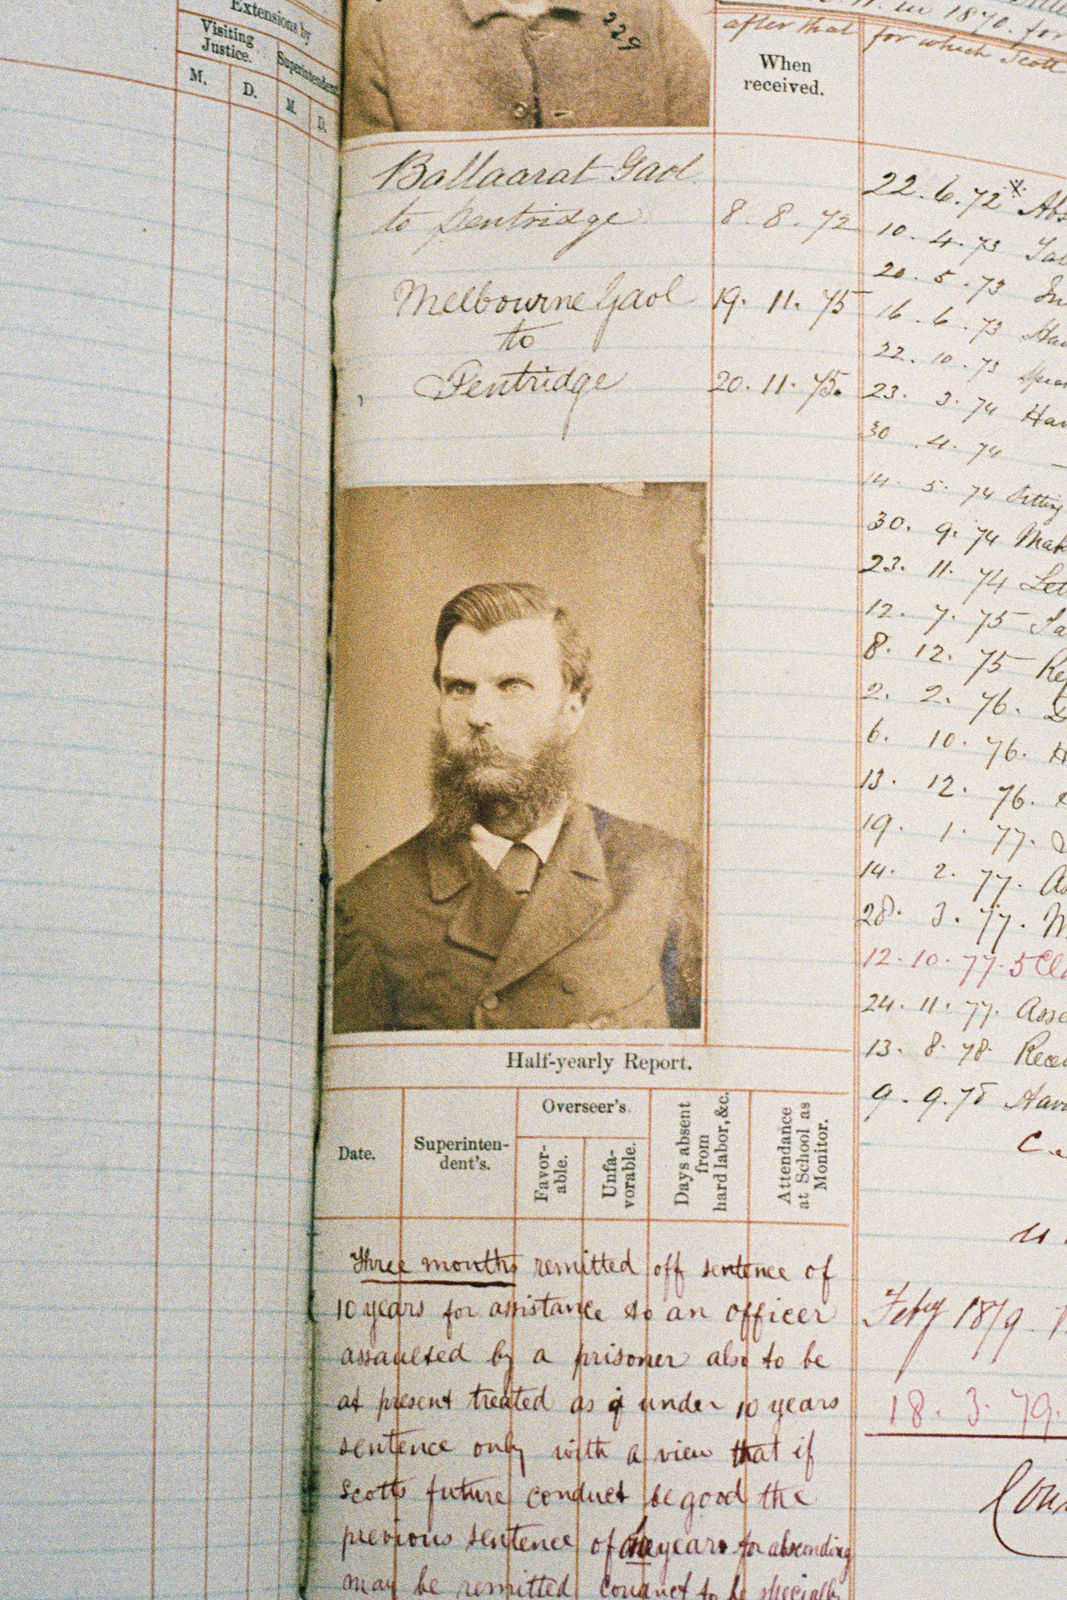 Extensions by
Visiting Justice.
Superintendent
M.
D.
M.
D.
229
in 1870. for
after that for which Scott
When received.
Ballaarat Gaol
to Pentridge 8. 8. 72
Melbourne Gaol 19. 11. 75
to
Pentridge 20. 11. 75.
22. 6. 72* Abs
10. 4. 73
20. 5. 73
16. 6. 73 Hav
22. 10. 73
23. 3. 74 Hav
30. 4. 74 —
14. 5. 74 Sitting
30. 9. 74 Mak
23. 11. 74 Let
12. 7. 75
8. 12. 75
2. 2. 76.
6. 10. 76. H
13. 12. 76.
19. 1. 77.
14. 2. 77. As
28. 3. 77. M
12. 10. 77. 5 Cl
24. 11. 77. Asse
13. 8. 78. Recei
9. 9. 78 Havi
Feby 1879.
18. 3. 79.
Half-yearly Report.
Date.
Superintendent's.
Overseer's.
Favorable.
Unfavorable.
Days absent from hard labor, &c.
Attendance at School as Monitor.
Three months remitted off sentence of
10 years for assistance to an officer
assaulted by a prisoner also to be
at present treated as if under 10 years
sentence only with a view that if
Scott's future conduct be good the
previous sentence of one year for absconding
may be remitted conduct to be specially